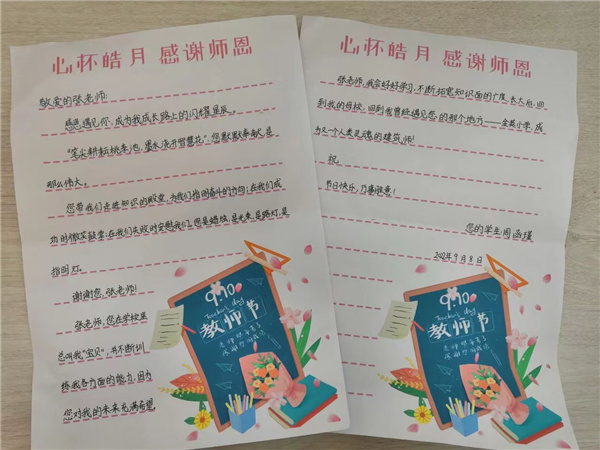 心怀皓月 感谢师恩
敬爱的张老师:
感恩遇见您,成为我成长路上的闪耀星辰。
“笔尖耕耘桃李池,墨水浇开智慧花”,您默默奉献,是
那么伟大。
您带我们走进知识的殿堂,为我们指明奋斗的方向;在我们成
功时微笑鼓掌;在我们失败时安慰我们。您是蜡烛,是火柴,是路灯,是
指明灯。
谢谢您,张老师!
张老师,您在学校里
总叫我“宝贝”,并不断训
练我各方面的能力,因为
您对我的未来充满希望。
9.10
Teacher's day
教师节
心怀皓月 感谢师恩
张老师,我会好好学习,不断拓宽知识面的广度,长大后,回
到我的母校,回到我曾经遇见您的那个地方——金英小学,成
为又一个人类灵魂的建筑师!
祝
节日快乐,万事胜意!
您的学生周函瑾
2022年9月8日
9.10
Teacher's day
教师节